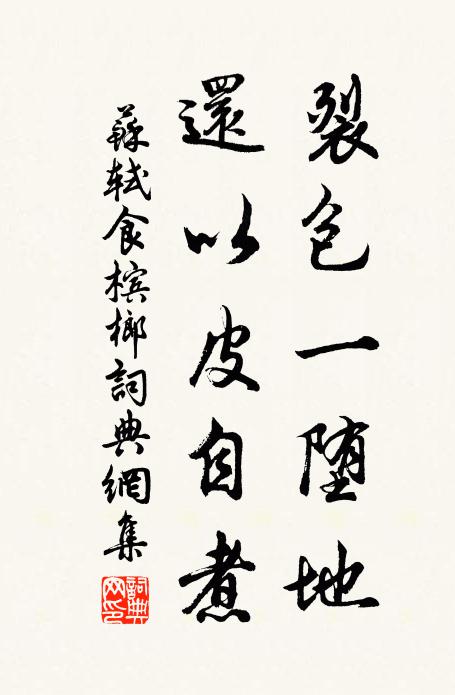 裂包一堕地
還以皮自煮
蘇軾食檳榔詞典網集
詞典網印